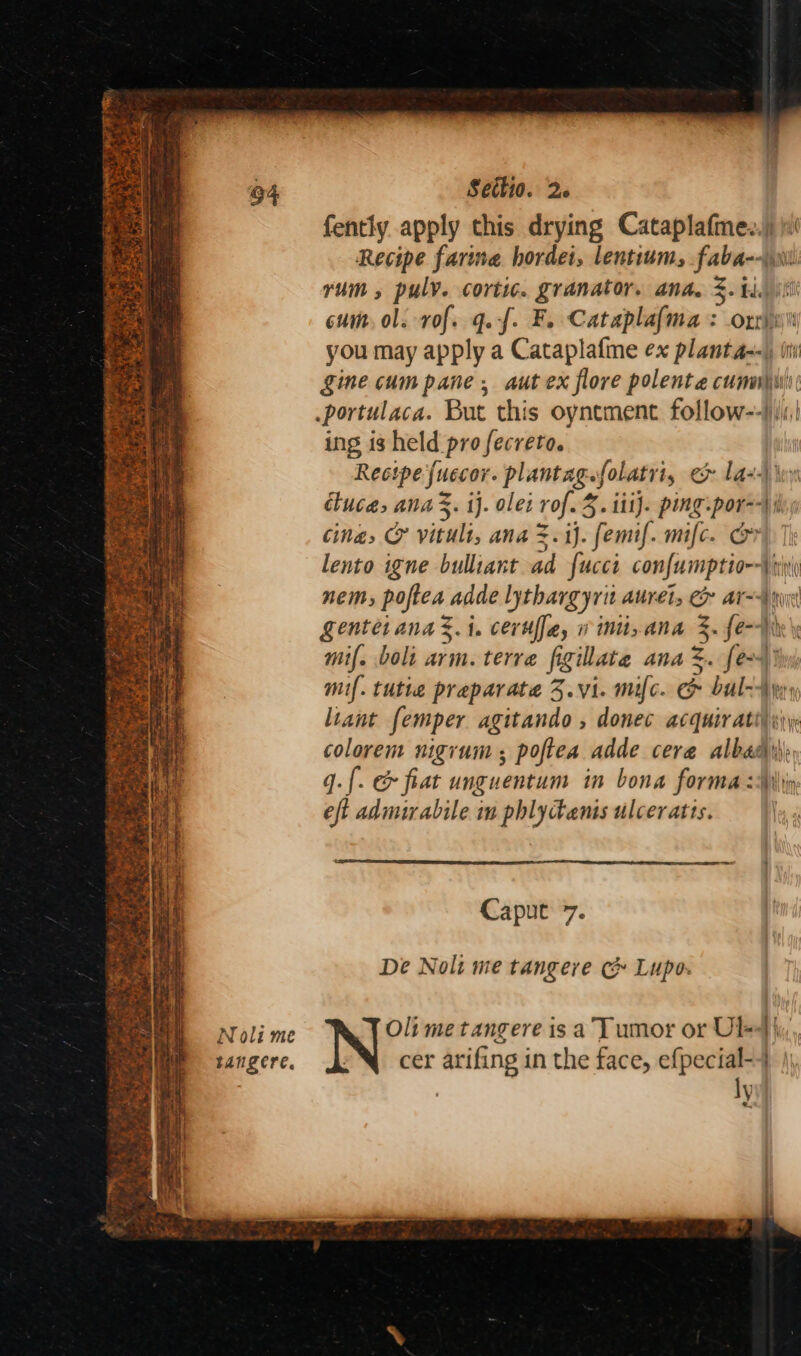 94
Sectio. 2.
ſently apply this drying Cataplaſme.
Recipe farinæ hordei, lentium, faba-
rum, pulv. cortic. granator. ana. ℥. ij.
cum. ol. roſ. q. ſ. F. Cataplaſma : or
you may apply a Cataplaſme ex planta-
gine cum pane, aut ex flore polentæ cum
portulaca. But this oyntment follow-
ing is held pro ſecreto.
Recipe ſuccor. plantag. ſolatri, & la-
ctucæ, ana ℥. ij. olei roſ. ℥. iiij. ping. por-
cinæ, & vituli, ana ℥. ij. ſemiſ. miſc. &
lento igne bulliant ad ſucci conſumptio-
nem, poſtea adde lythargyrii aurei, & ar-
gentei ana ℥. i. ceruſſæ, minii, ana ℥. ſe-
miſ. boli arm. terræ ſigillatæ ana ℥. ſe-
miſ. tutiæ preparatæ ʒ. vi. miſc. & bul-
liant ſemper agitando, donec acquirat
colorem nigrum ; poſtea adde ceræ albæ
q. ſ. & fiat unguentum in bona forma :
eſt admirabile in phlyctænis ulceratis.
Caput 7.
De Noli me tangere & Lupo.
Noli me
tangere.
NOli me tangere is a Tumor or Ul-
cer ariſing in the face, eſpecial-
ly